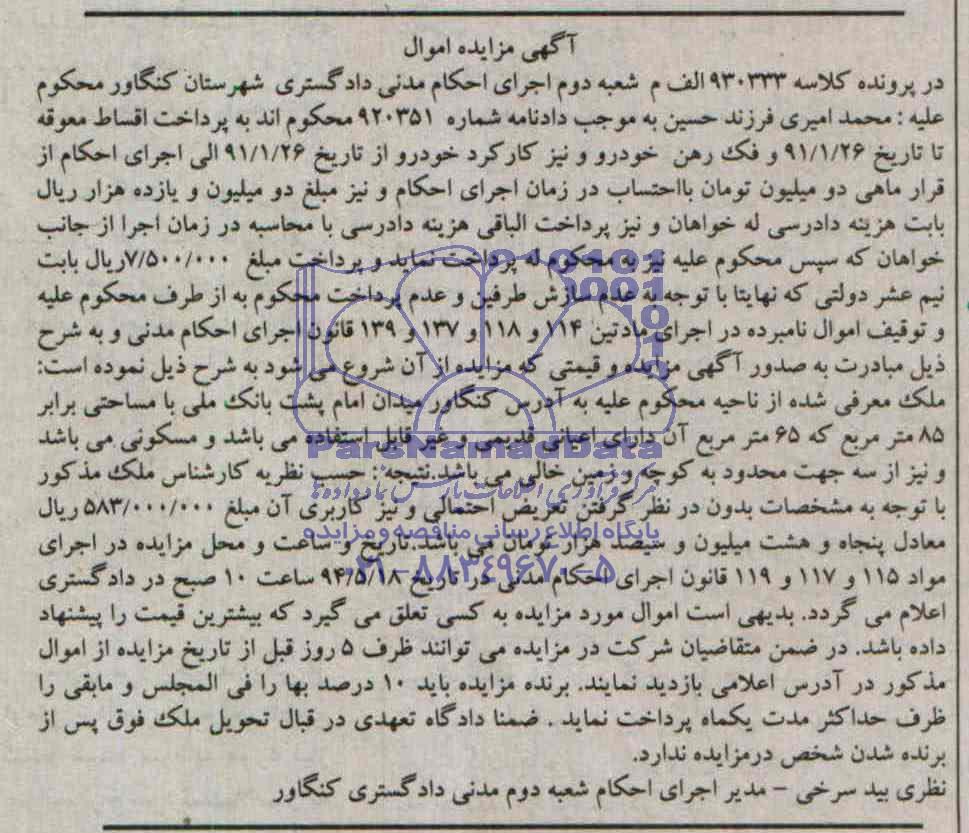 آگهی مزایده اموال
در پرونده کلاسه ۹۳۰۳۳۳ الف م شعبه دوم اجرای احکام مدنی دادگستری شهرستان کنگاور محکوم
علیه : محمد امیری فرزند حسین به موجب دادنامه شماره ۹۲۰۳۵۱ محکوم اند به پرداخت اقساط معوقه
تا تاریخ ۹۱/۱/۲۶ و فک رهن خودرو و نیز کارکرد خودرو از تاریخ ۹۱/۱/۲۶ الی اجرای احکام از
قرار ماهی دو میلیون تومان بااحتساب در زمان اجرای احکام و نیز مبلغ دو میلیون و یازده هزار ریال
بابت هزینه دادرسی له خواهان و نیز پرداخت الباقی هزینه دادرسی با محاسبه در زمان اجرا از جانب
خواهان که سپس محکوم علیه نیز به محکوم له پرداخت نماید و پرداخت مبلغ ۷/۵۰۰/۰۰۰ریال بابت
نیم عشر دولتی که نهایتا با توجه به عدم سازش طرفین و عدم پرداخت محکوم به از طرف محکوم علیه
و توقیف اموال نامبرده در اجرای مادتین ۱۱۴ و ۱۱۸ و ۱۳۷ و ۱۳۹ قانون اجرای احکام مدنی و به شرح
ذیل مبادرت به صدور آگهی مزایده و قیمتی که مزایده از آن شروع می شود به شرح ذیل نموده است:
ملک معرفی شده از ناحیه محکوم علیه به آدرس کنگاور میدان امام پشت بانک ملی با مساحتی برابر
۸۵ متر مربع که ۶۵ متر مربع آن دارای اعیانی قدیمی و غیر قابل استفاده می باشد و مسکونی می باشد
و نیز از سه جهت محدود به کوچه و زمین خالی می باشد.نتیجه: حسب نظریه کارشناس ملک مذکور
با توجه به مشخصات بدون در نظر گرفتن تعریض احتمالی و نیز کاربری آن مبلغ ۵۸۳/۰۰۰/۰۰۰ ریال
معادل پنجاه و هشت میلیون و سیصد هزار تومان می باشد.تاریخ و ساعت و محل مزایده در اجرای
مواد ۱۱۵ و ۱۱۷ و ۱۱۹ قانون اجرای احکام مدنی در تاریخ ۹۴/۵/۱۸ ساعت ۱۰ صبح در دادگستری
اعلام می گردد. بدیهی است اموال مورد مزایده به کسی تعلق می گیرد که بیشترین قیمت را پیشنهاد
داده باشد. در ضمن متقاضیان شرکت در مزایده می توانند ظرف ۵ روز قبل از تاریخ مزایده از اموال
مذکور در آدرس اعلامی بازدید نمایند. برنده مزایده باید ۱۰ درصد بها را فی المجلس و مابقی را
ظرف حداکثر مدت یکماه پرداخت نماید . ضمنا دادگاه تعهدی در قبال تحویل ملک فوق پس از
برنده شدن شخص درمزایده ندارد.
نظری بید سرخی - مدیر اجرای احکام شعبه دوم مدنی دادگستری کنگاور
ParsNamadData
پایگاه اطلاع رسانی مناقصه و مزایده
۰۲۱-۸۸۳۴۹۶۷۰-۵